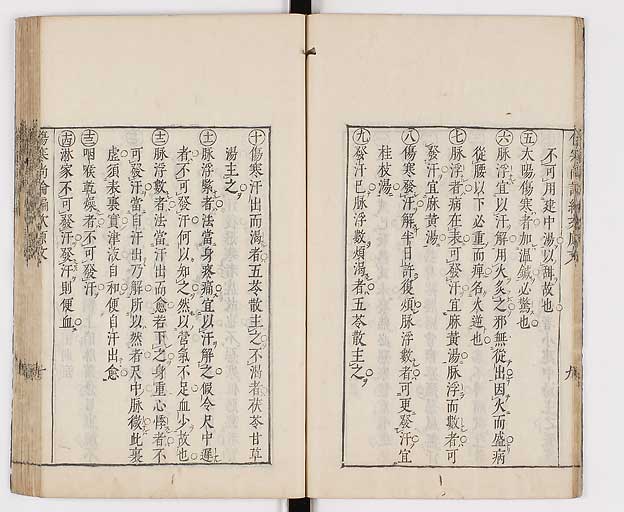 不可用建中湯以甜故也
㊄太陽傷寒者加溫鍼必驚也
㊅脉浮宜以汗解用火灸之邪無從出因火而盛病
從腰以下必重而痺名火逆也
㊆脉浮者病在表可發汗宜麻黃湯脉浮而數者可
發汗宜麻黃湯
㊇傷寒發汗解半日許復煩脉浮數者可更發汗宜
桂枝湯
㊈發汗已脉浮數煩渴者五苓散主之
㊉傷寒汗出而渴者五苓散主之不渴者茯苓甘草
湯主之
脉浮緊者法當身疼痛宜以汗解之假令尺中遲
者不可發汗何以知之然以營氣不足血少故也
脉浮數者法當汗出而愈若下之身重心悸者不
可發汗當自汗出乃解所以然者尺中脉微此裏
虛須表裏實津液自和便自汗出愈
咽喉乾燥者不可發汗
淋家不可發汗發汗則便血
傷寒尚論編次原文